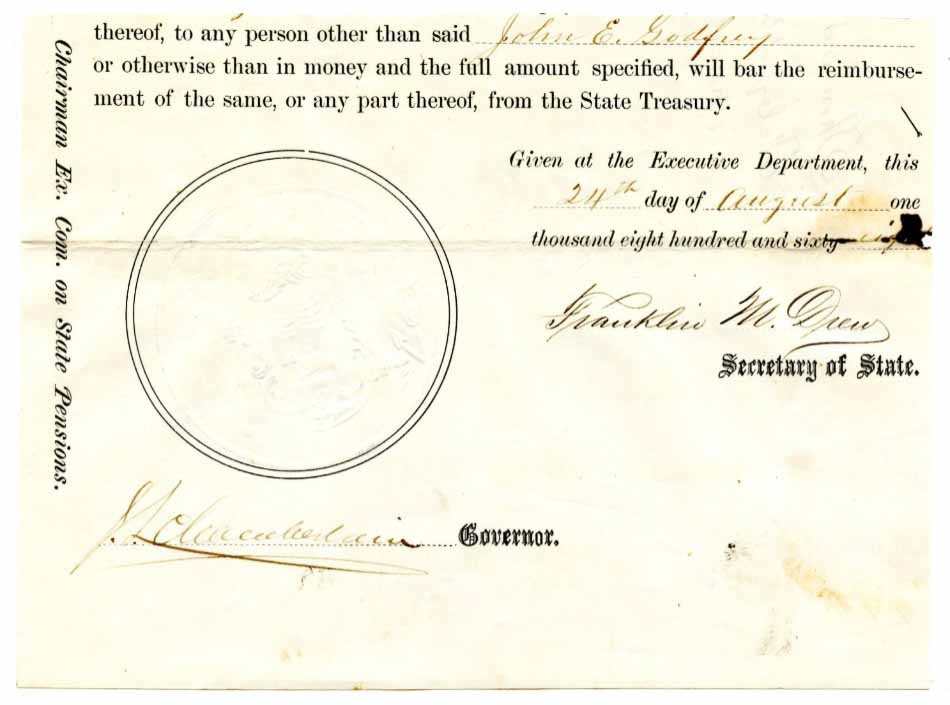 thereof, to any person other than said John E. Godfrey
or otherwise than in money and the full amount specified, will bar the reimburse-
ment of the same, or any part thereof, from the State Treasury.
Given at the Executive Department, this
24th day of August one
thousand eight hundred and sixty
Franklin M. Drew
Secretary of State.
J L Chamberlain Governor.
Chairman Ex. Com. on State Pensions.